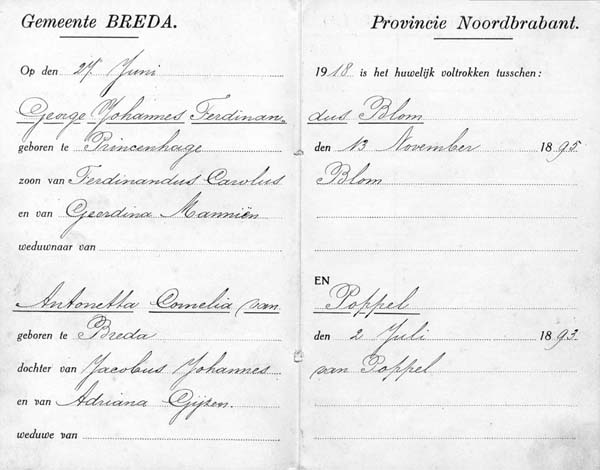 Gemeente BREDA.
Provincie Noordbrabant.
Op den 27 Juni
1918 is het huwelijk voltrokken tusschen:
George Johannes Ferdinan-
dus Blom
geboren te Princenhage
den 13 November 1895.
zoon van Ferdinandus Carolus
Blom
en van Geerdina Manniën
weduwnaar van
EN
Antonetta Cornelia van
Poppel
geboren te Breda
den 2 Juli 1893.
dochter van Jacobus Johannes
van Poppel
en van Adriana Gijzen.
weduwe van